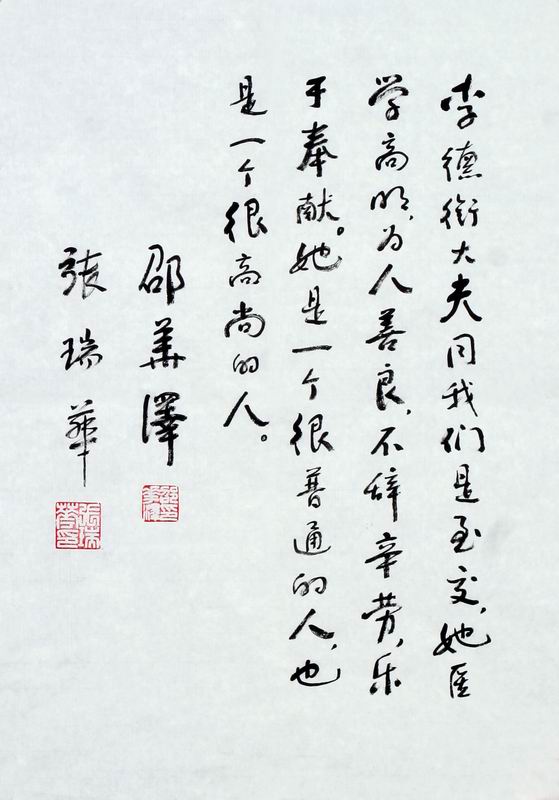 李德衔大夫同我们是至交，她医
学高明，为人善良，不辞辛劳，乐
于奉献。她是一个很普通的人，也
是一个很高尚的人。
邵華澤
張瑞華